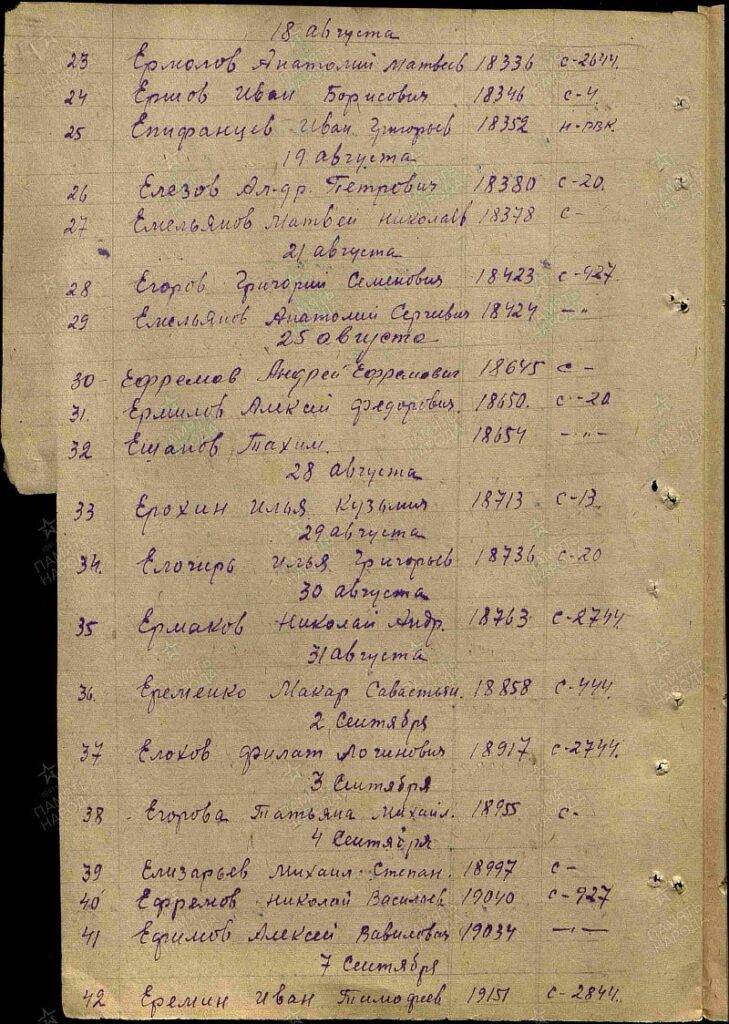 18 августа
23 Ермолов Анатолий Матвеев 18336 с-2644.
24 Ершов Иван Борисович 18346 с-4
25 Епифанцев Иван Григорьев 18352 н-РВК
19 августа
26 Елезов Ал-др. Петрович 18380 с-20.
27 Емельянов Матвей Николаев 18378 с-
21 августа
28 Егоров Григорий Семенович 18423 с-927
29 Емельянов Анатолий Сергиевич 18424 -"-
25 августа
30 Ефремов Андрей Ефремович 18645 с-
31. Ермилов Алексей Федорович. 18650. с-20
32 Ешанов Тахим. 18654 -"-
28 августа
33 Ерохин Илья Кузьмич 18713 с-13.
29 августа
34. Елочирь Илья Григорьев 18736 с-20
30 августа
35 Ермаков Николай Андр. 18763 с-2744.
31 августа
36. Еременко Макар Савастьян. 18858 с-444.
2 Сентября
37 Елохов Филат Логинович 18917 с-2744.
3 Сентября
38 Егорова Татьяна Михайл. 18955 с-
4 Сентября
39 Елизарьев Михаил Степан. 18997 с-
40 Ефремов Николай Васильев 19040 с-927
41 Ефимов Алексей Вавилович 19034 -"-
7 Сентября
42 Еремин Иван Тимофеев 19151 с-2844.